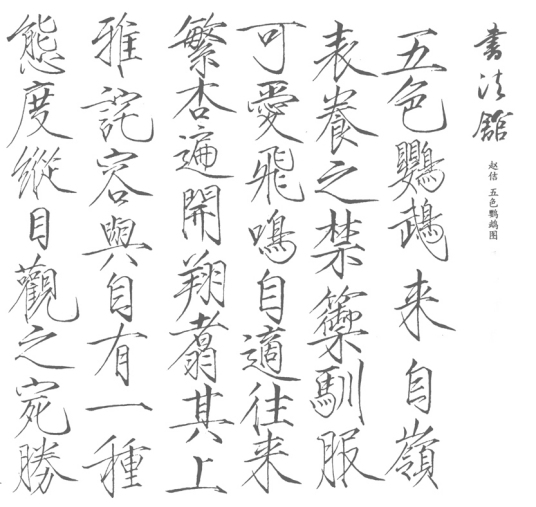 書法館
赵佶 五色鹦鹉图
五色鸚鵡来自嶺
表養之禁籞馴服
可愛飛鳴自適往来
繁杏遍開翔翥其上
雅詫容與自有一種
態度縱目觀之宛勝